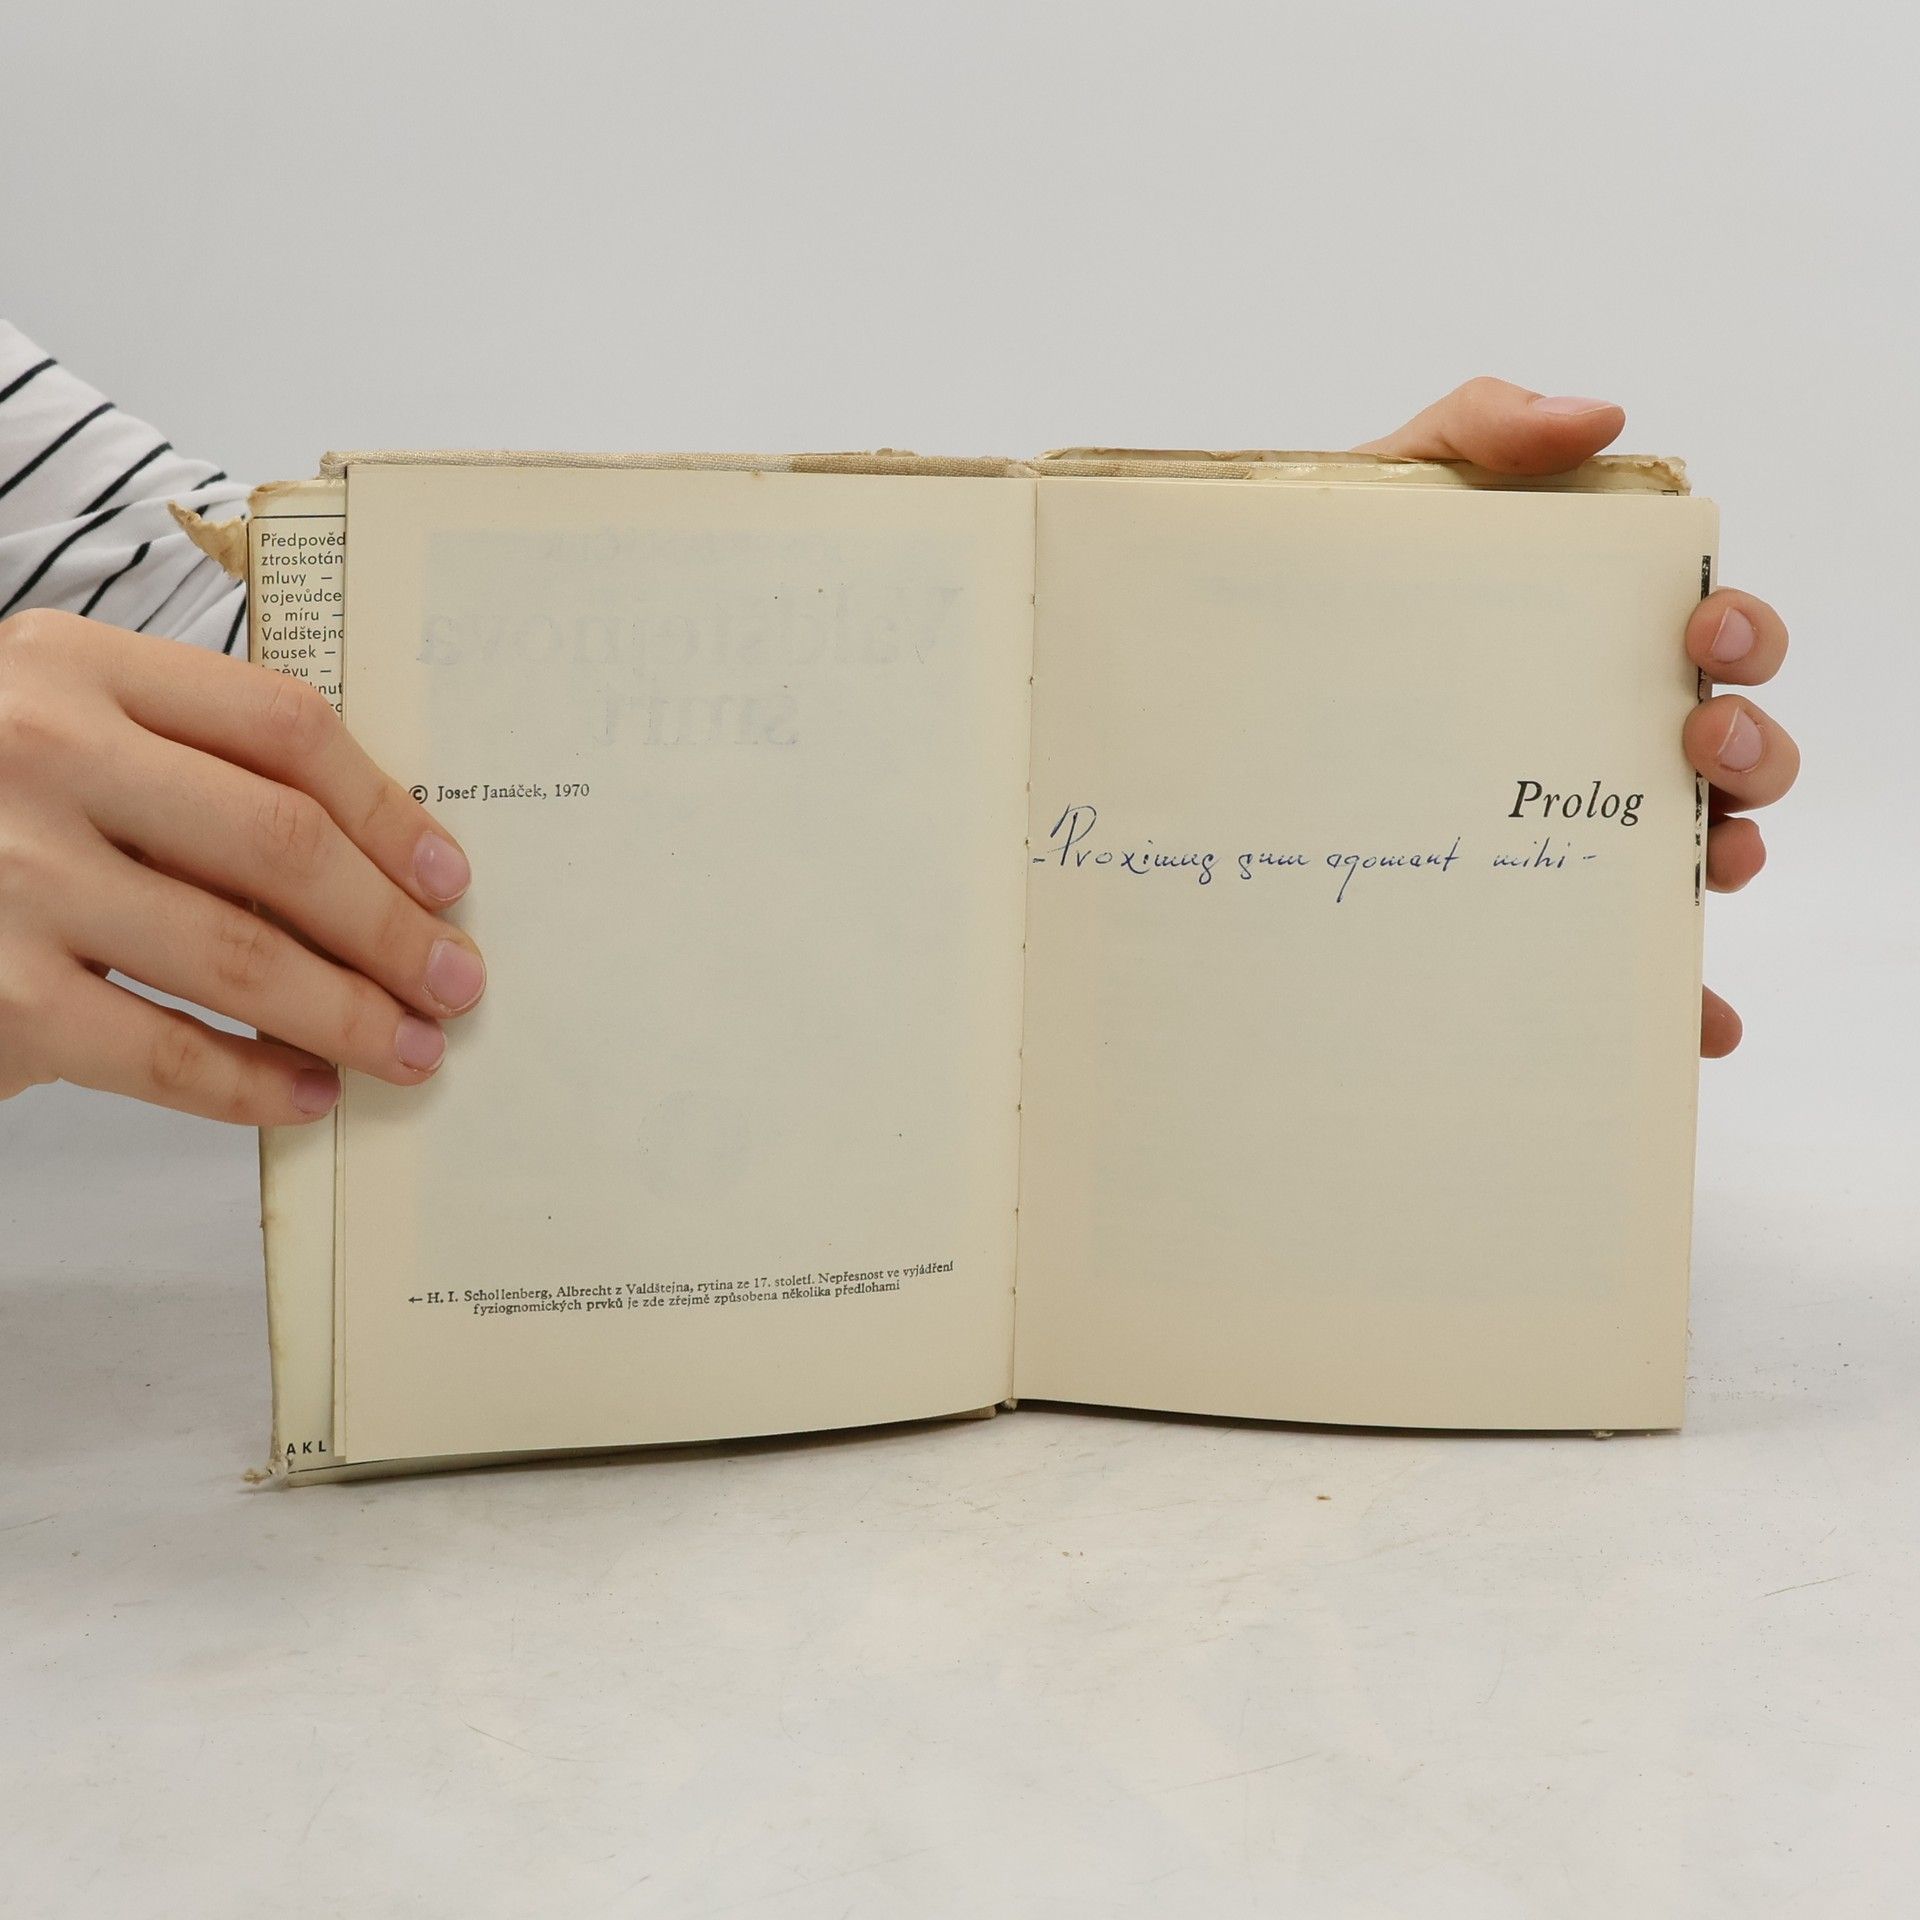 Předpověd
ztroskotán
mluvy —
vojevůdce
o míru —
Valdštejno
kousek —
hněvu —
knut
AKL
© Josef Janáček, 1970
← H. I. Schollenberg, Albrecht z Valdštejna, rytina ze 17. století. Nepřesnost ve vyjádření
fyziognomických prvků je zde zřejmě způsobena několika předlohami
Prolog
- Proximus sum egomant mihi -